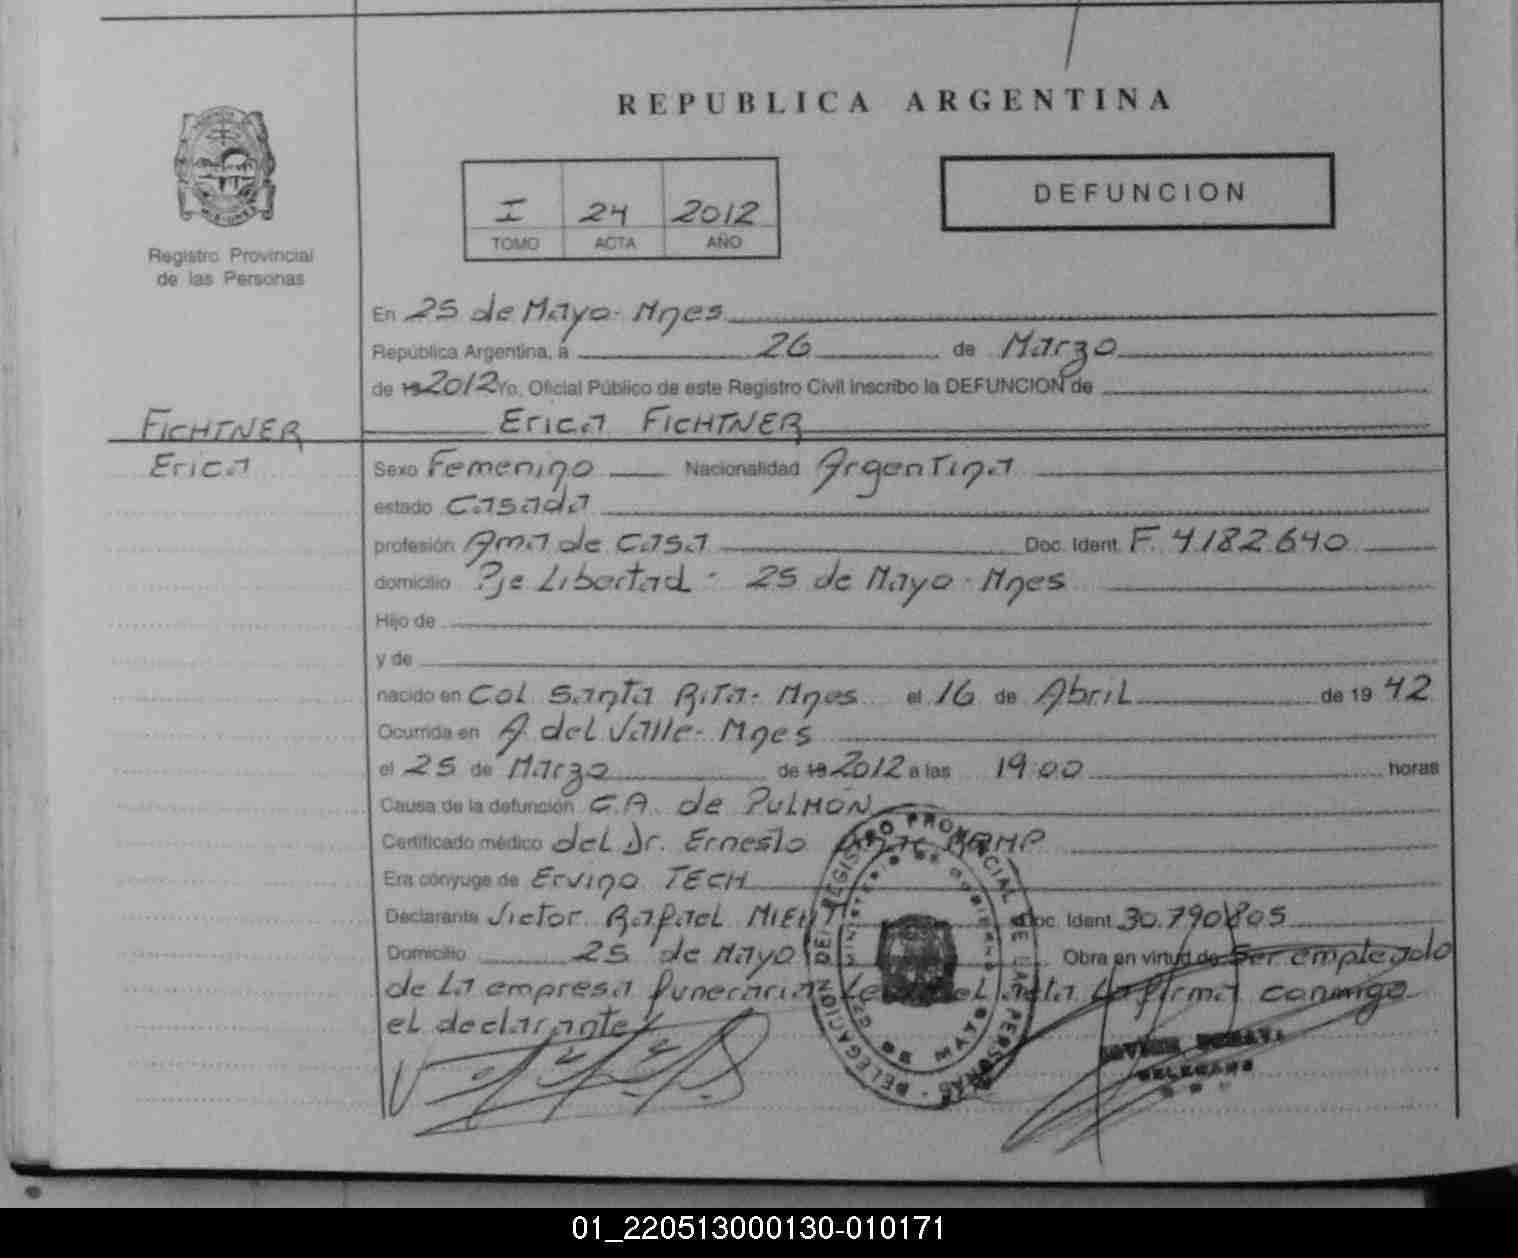 REPUBLICA ARGENTINA
I 24 2012
TOMO ACTA AÑO
DEFUNCION
Registro Provincial
de las Personas
En 25 de Mayo - Mnes
República Argentina, a 26 de Marzo
de 19 2012 Yo, Oficial Público de este Registro Civil inscribo la DEFUNCION de
FICHTNER
Erica
Erica FICHTNER
Sexo Femenino Nacionalidad Argentina
estado Casada
profesión Ama de Casa Doc. Ident. F. 4.182.640
domicilio Pje Libertad - 25 de Mayo - Mnes
Hijo de
y de
nacido en Col Santa Rita - Mnes el 16 de Abril de 19 42
Ocurrida en A. del Valle - Mnes
el 25 de Marzo de 19 2012 a las 19:00 horas
Causa de la defunción C.A. de PULMÓN
Certificado médico del Dr. Ernesto
Era cónyuge de Ervino TECH
Declarante Victor Rafael Doc. Ident. 30.790.805
Domicilio 25 de Mayo Obra en virtud de Ser empleado
de La empresa funeraria Leída el acta la firma conmigo
el declarante
DELEGACION DEL REGISTRO PROVINCIAL DE LAS PERSONAS
MINISTERIO DE GOBIERNO
25 DE MAYO
DELEGADO
01_220513000130-010171